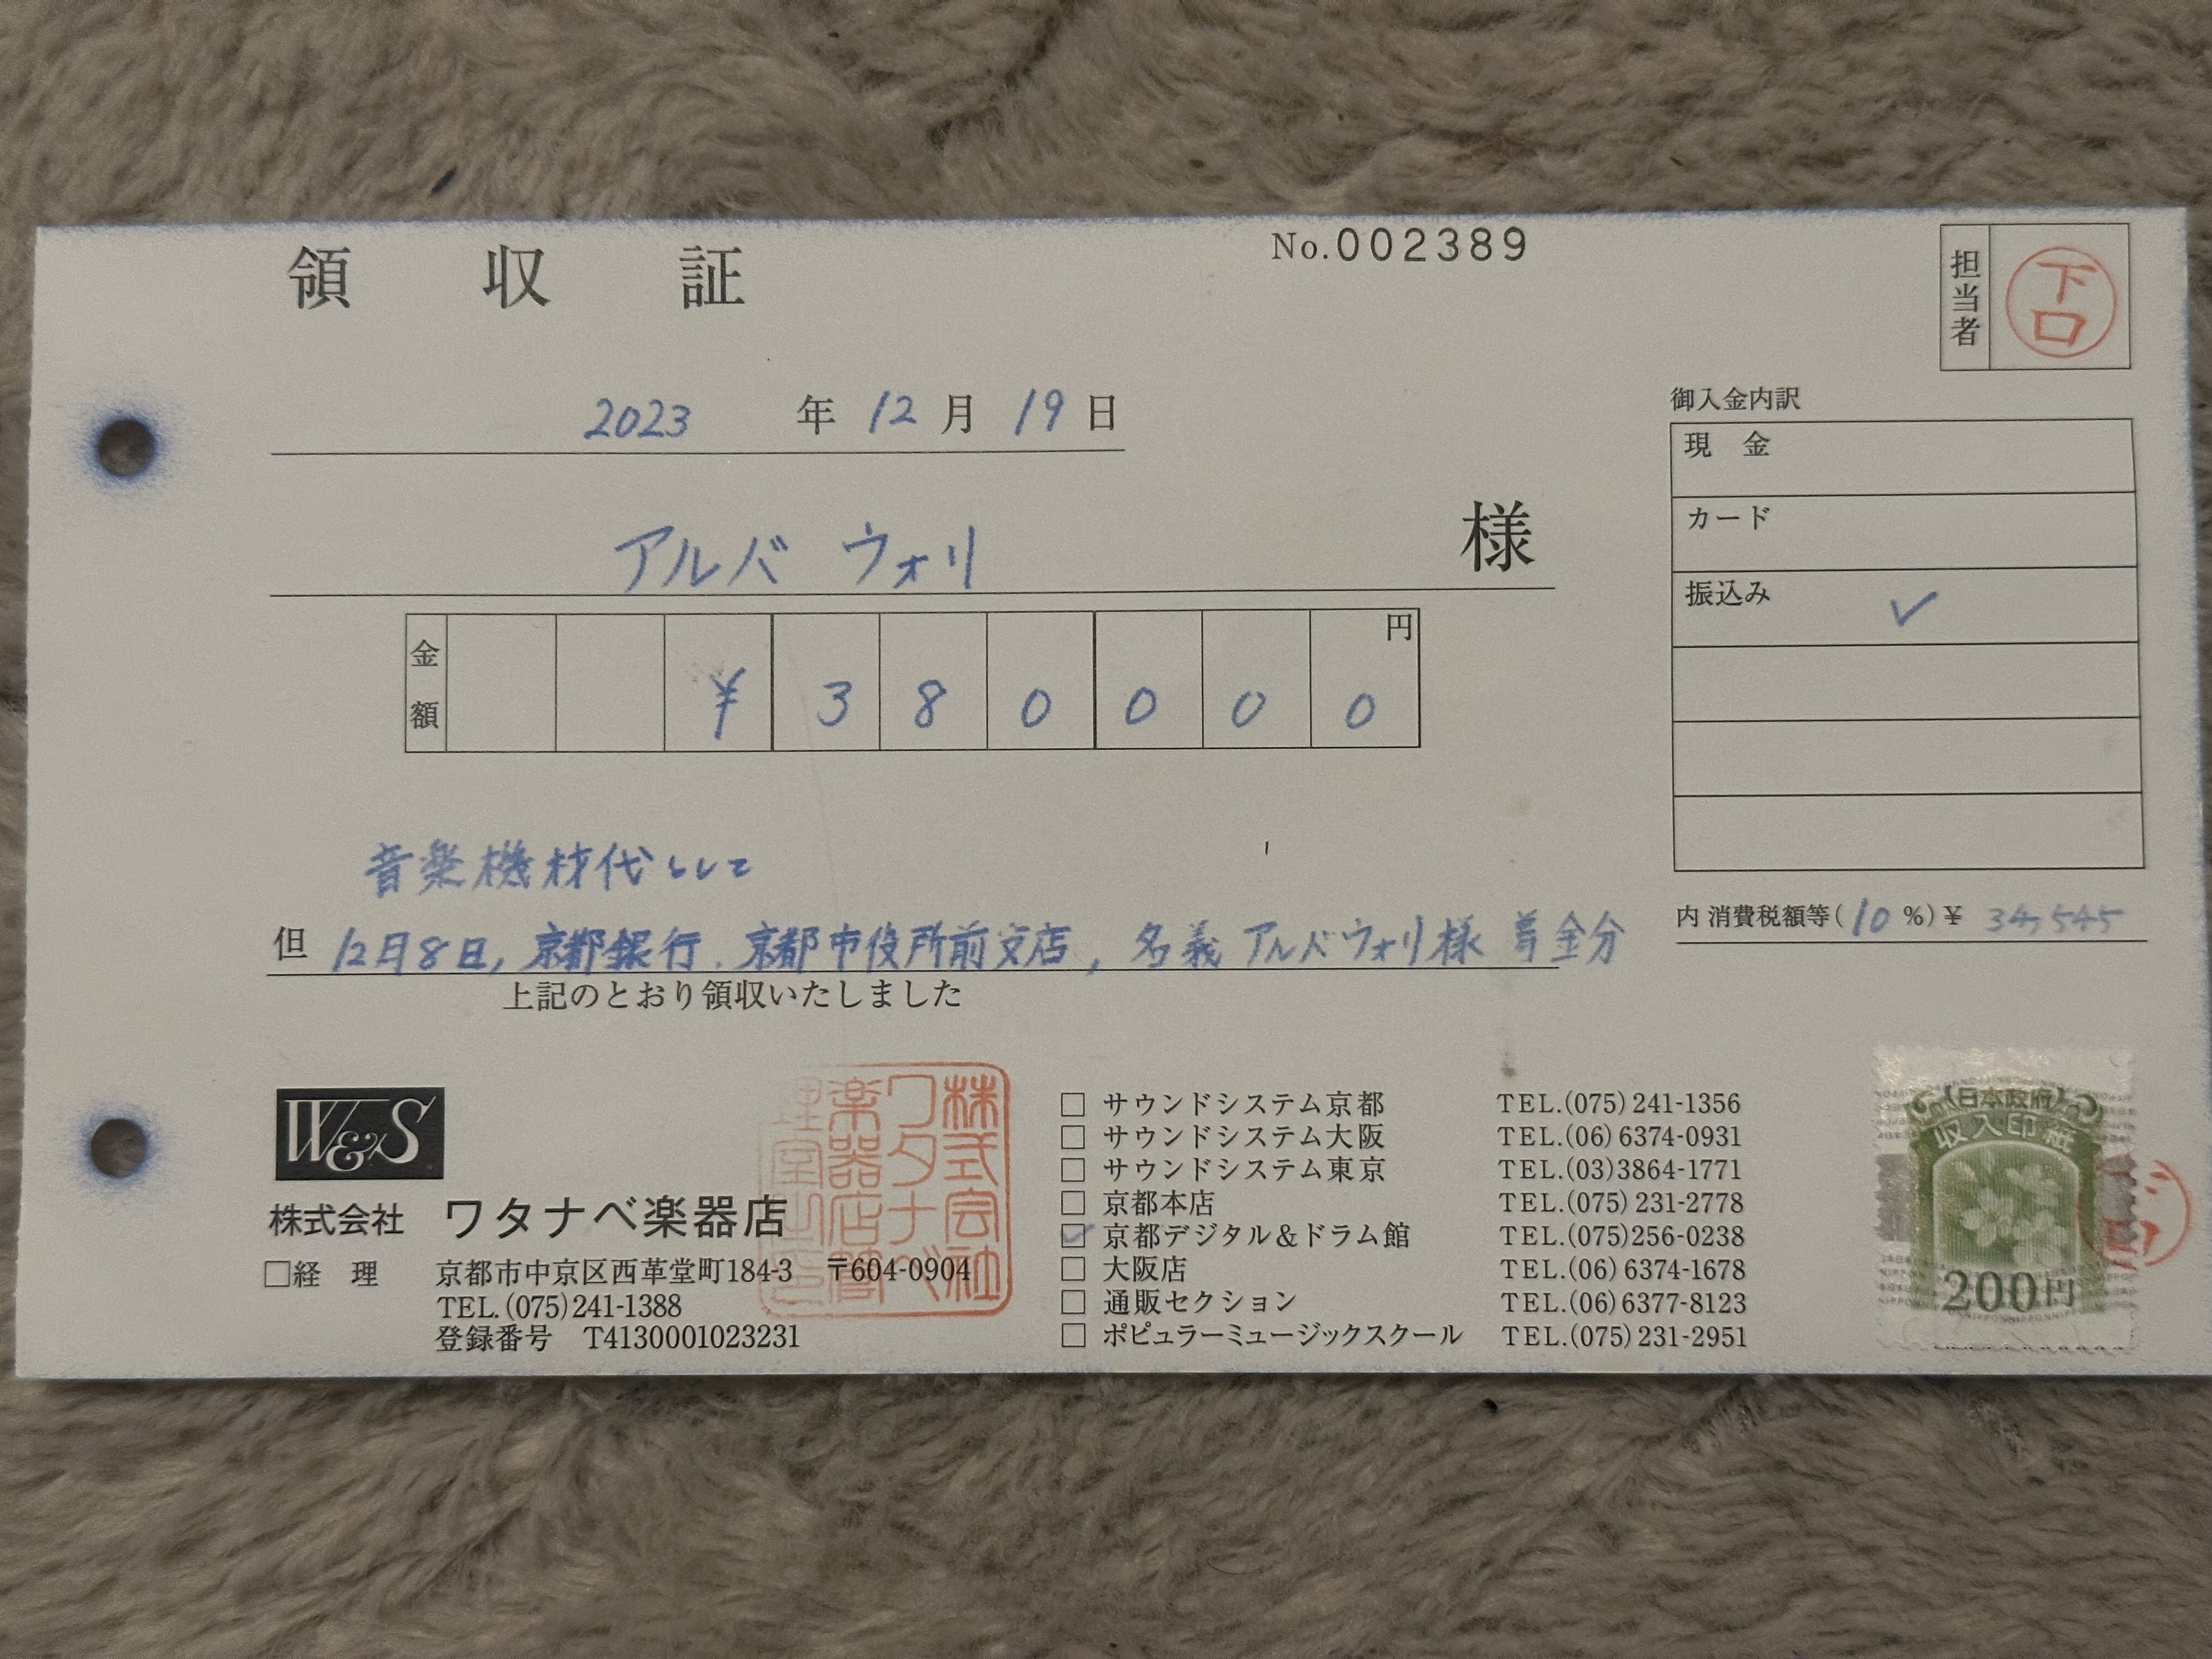 領 収 証
No.002389
担当者
下口
2023 年 12 月 19 日
アルバ ウォリ 様
金額 ¥ 3 8 0 0 0 0 円
御入金内訳
現 金
カード
振込み ✓
音楽機材代として
但 12月8日, 京都銀行. 京都市役所前支店, 名義 アルバウォリ様 入金分
内 消費税額等(10%)¥ 34,545
上記のとおり領収いたしました
W&S
株式会社 ワタナベ楽器店
株式会社ワタナベ楽器店
□経 理 京都市中京区西革堂町184-3 〒604-0904
TEL.(075)241-1388
登録番号 T4130001023231
□ サウンドシステム京都 TEL.(075)241-1356
□ サウンドシステム大阪 TEL.(06)6374-0931
□ サウンドシステム東京 TEL.(03)3864-1771
□ 京都本店 TEL.(075)231-2778
☑ 京都デジタル&ドラム館 TEL.(075)256-0238
□ 大阪店 TEL.(06)6374-1678
□ 通販セクション TEL.(06)6377-8123
□ ポピュラーミュージックスクール TEL.(075)231-2951
日本政府
収入印紙
200円